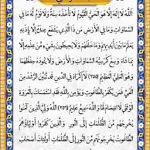 اللَّهُ لَا إِلَٰهَ إِلَّا هُوَ الْحَيُّ الْقَيُّومُ لَا تَأْخُذُهُ سِنَةٌ وَلَا نَوْمٌ لَهُ مَا فِي
السَّمَاوَاتِ وَمَا فِي الْأَرْضِ مَنْ ذَا الَّذِي يَشْفَعُ عِنْدَهُ إِلَّا بِإِذْنِهِ
يَعْلَمُ مَا بَيْنَ أَيْدِيهِمْ وَمَا خَلْفَهُمْ وَلَا يُحِيطُونَ بِشَيْءٍ مِنْ عِلْمِهِ إِلَّا بِمَا
شَاءَ وَسِعَ كُرْسِيُّهُ السَّمَاوَاتِ وَالْأَرْضَ وَلَا يَئُودُهُ حِفْظُهُمَا
وَهُوَ الْعَلِيُّ الْعَظِيمُ (٢٥٥) لَا إِكْرَاهَ فِي الدِّينِ قَدْ تَبَيَّنَ الرُّشْدُ مِنَ
الْغَيِّ فَمَنْ يَكْفُرْ بِالطَّاغُوتِ وَيُؤْمِنْ بِاللَّهِ فَقَدِ اسْتَمْسَكَ بِالْعُرْوَةِ
الْوُثْقَىٰ لَا انْفِصَامَ لَهَا وَاللَّهُ سَمِيعٌ عَلِيمٌ (٢٥٦) اللَّهُ وَلِيُّ الَّذِينَ آمَنُوا
يُخْرِجُهُمْ مِنَ الظُّلُمَاتِ إِلَى النُّورِ وَالَّذِينَ كَفَرُوا أَوْلِيَاؤُهُمُ
الطَّاغُوتُ يُخْرِجُونَهُمْ مِنَ النُّورِ إِلَى الظُّلُمَاتِ أُولَٰئِكَ أَصْحَابُ